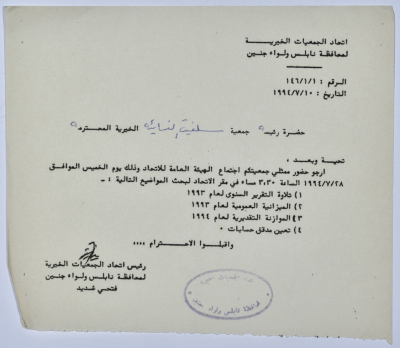 اتحاد الجمعيات الخيرية
لمحافظة نابلس ولواء جنين
الرقم : ١٤٦/١/١
التاريخ : ١٩٩٤/٧/١٠
حضرة رئيسة جمعية سلفيت النسائية الخيرية المحترمة
تحية وبعد ،
ارجو حضور ممثلي جمعيتكم اجتماع الهيئة العامة للاتحاد وذلك يوم الخميس الموافق
١٩٩٤/٧/٢٨ الساعة ٣:٣٠ مساء في مقر الاتحاد لبحث المواضيع التالية : -
١) تلاوة التقرير السنوى لعام ١٩٩٣
٢) الميزانية العمومية لعام ١٩٩٣
٣) الموازنة التقديرية لعام ١٩٩٤
٤) تعين مدقق حسابات ٠
واقبلوا الاحترام ،،،،
رئيس اتحاد الجمعيات الخيرية
لمحافظة نابلس ولواء جنين
فتحي غديد
لمحافظة نابلس ولواء جنين